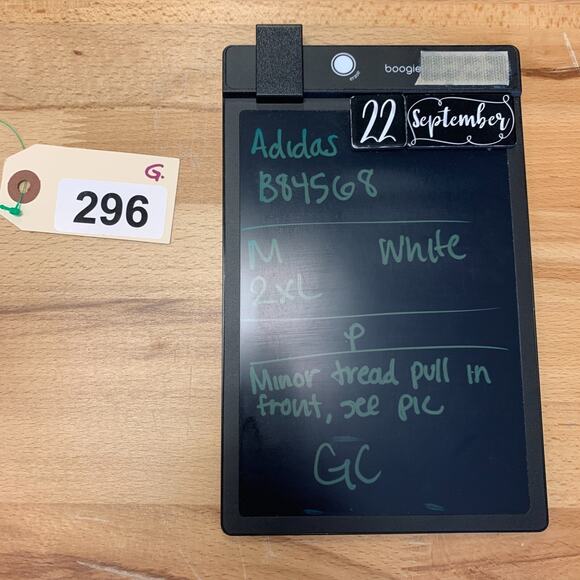 G.
296
erase
boogie
22 September
Adidas
B84568
M White
2XL
P
Minor tread pull in
front, see pic
GC